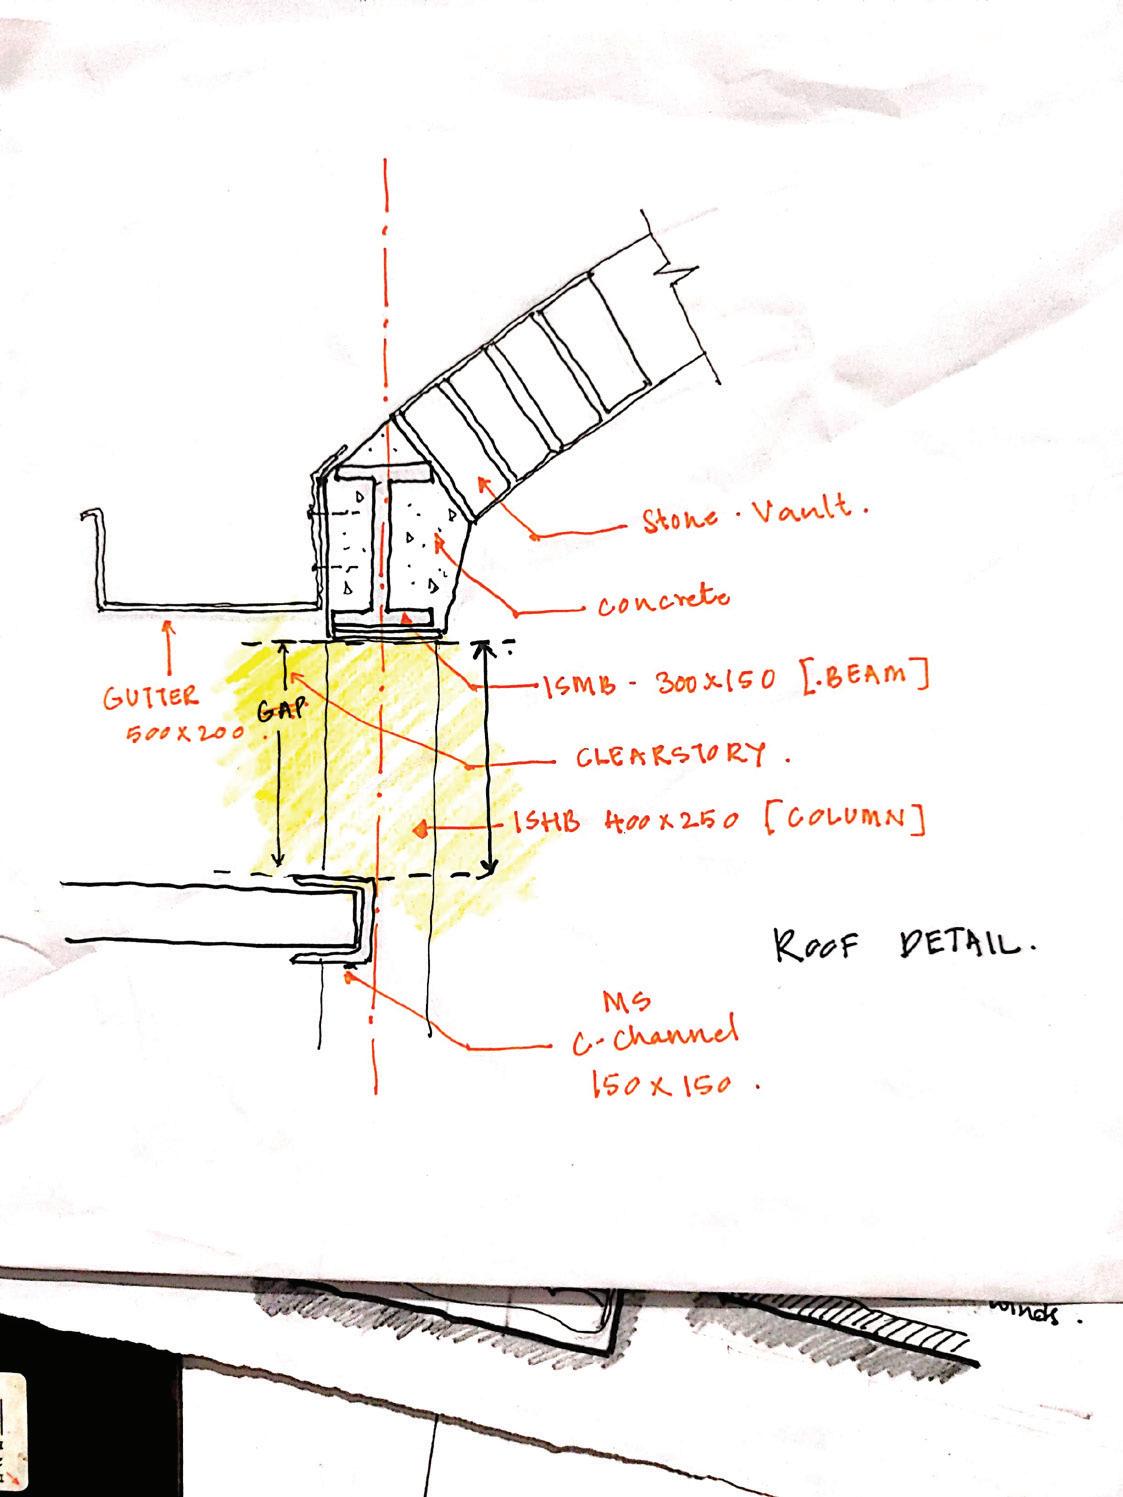 Stone. Vault.
concrete
ISMB - 300x150 [.BEAM]
GUTTER
500x200.
GAP
CLEARSTORY.
ISHB 400x250 [COLUMN]
ROOF DETAIL.
MS
C-Channel
150x150.
winds.